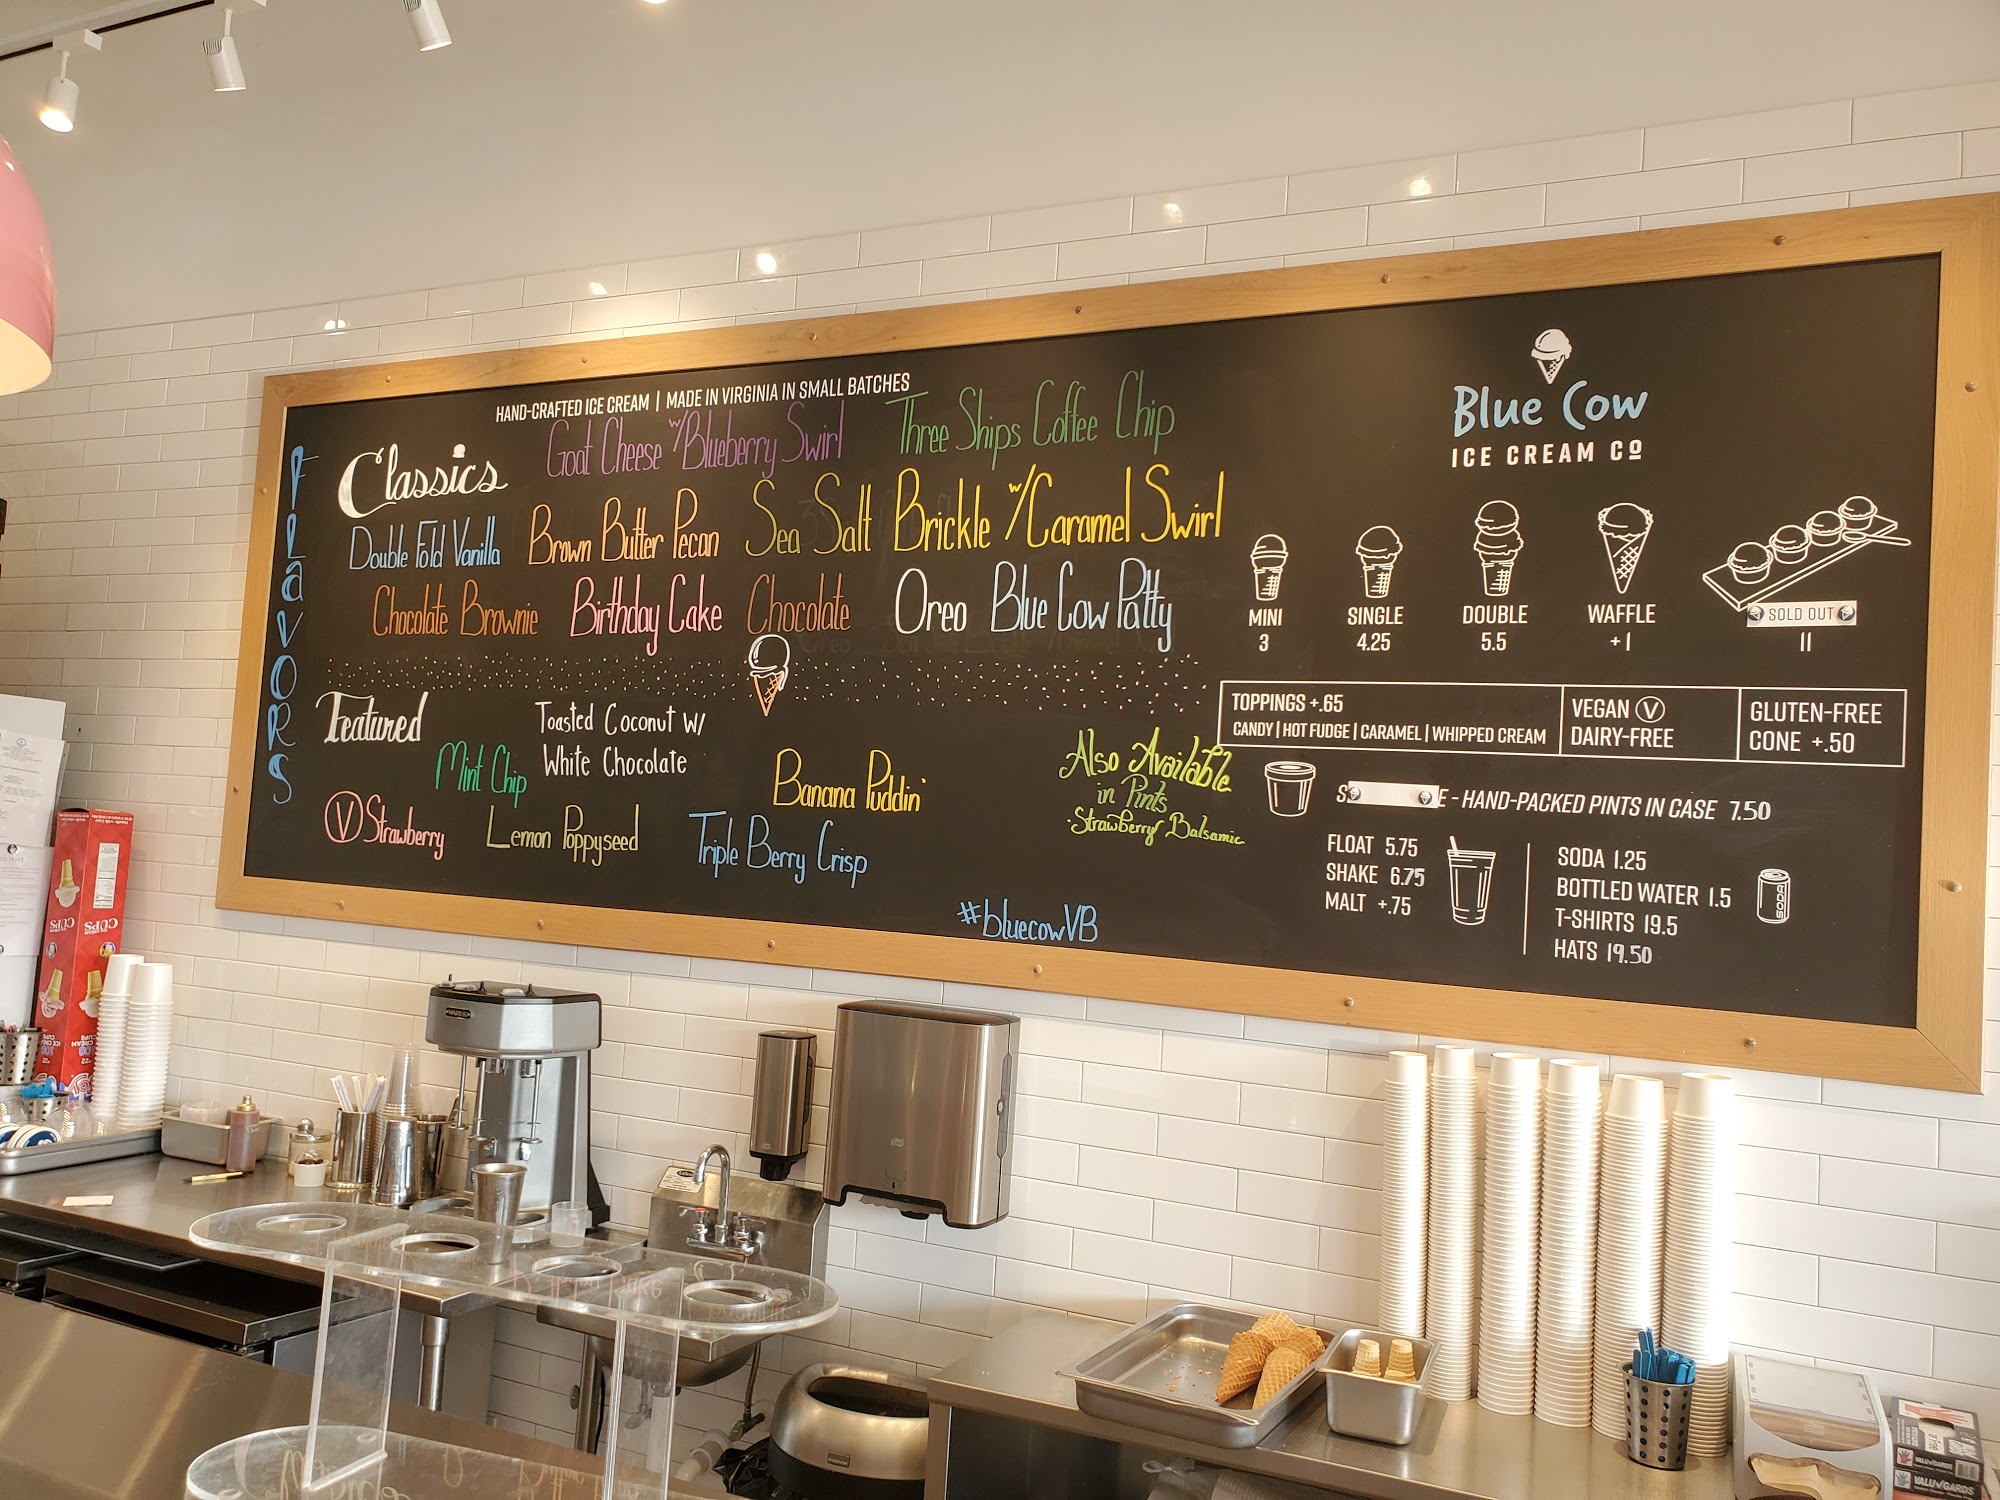 HAND-CRAFTED ICE CREAM | MADE IN VIRGINIA IN SMALL BATCHES
FLaVORS
Classics
Goat Cheese w/Blueberry Swirl
Three Ships Coffee Chip
Double Fold Vanilla
Brown Butter Pecan
Sea Salt Brickle w/Caramel Swirl
Chocolate Brownie
Birthday Cake
Chocolate
Oreo
Blue Cow Patty
Featured
Mint Chip
Toasted Coconut W/
White Chocolate
Banana Puddin'
V Strawberry
Lemon Poppyseed
Triple Berry Crisp
Also Available
in Pints
·Strawberry Balsamic
#bluecowVB
Blue Cow
ICE CREAM CO
MINI
3
SINGLE
4.25
DOUBLE
5.5
WAFFLE
+1
SOLD OUT
11
TOPPINGS +.65
CANDY | HOT FUDGE | CARAMEL | WHIPPED CREAM
VEGAN V
DAIRY-FREE
GLUTEN-FREE
CONE +.50
- HAND-PACKED PINTS IN CASE 7.50
FLOAT 5.75
SHAKE 6.75
MALT +.75
SODA 1.25
BOTTLED WATER 1.5
T-SHIRTS 19.5
HATS 19.50
SODA
CUPS
CUPS
VALUGARDS
VALUGARDS